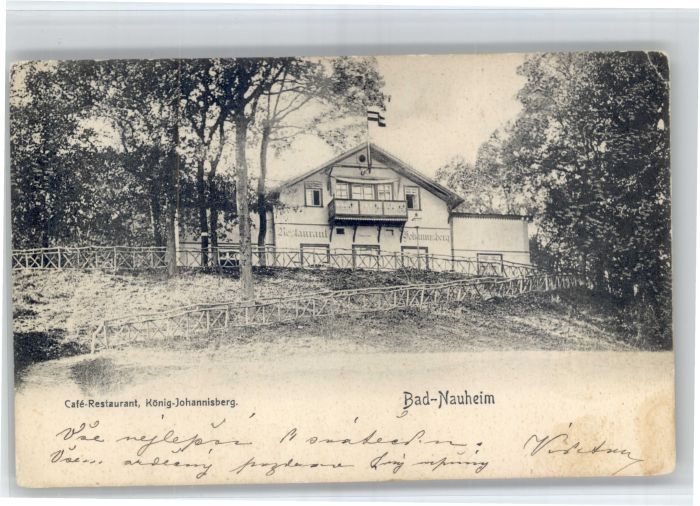 Restaurant Johannisberg
Café-Restaurant, König-Johannisberg.
Bad-Nauheim
Vše nejlepší k svátečům.
Všem srdečný pozdrav